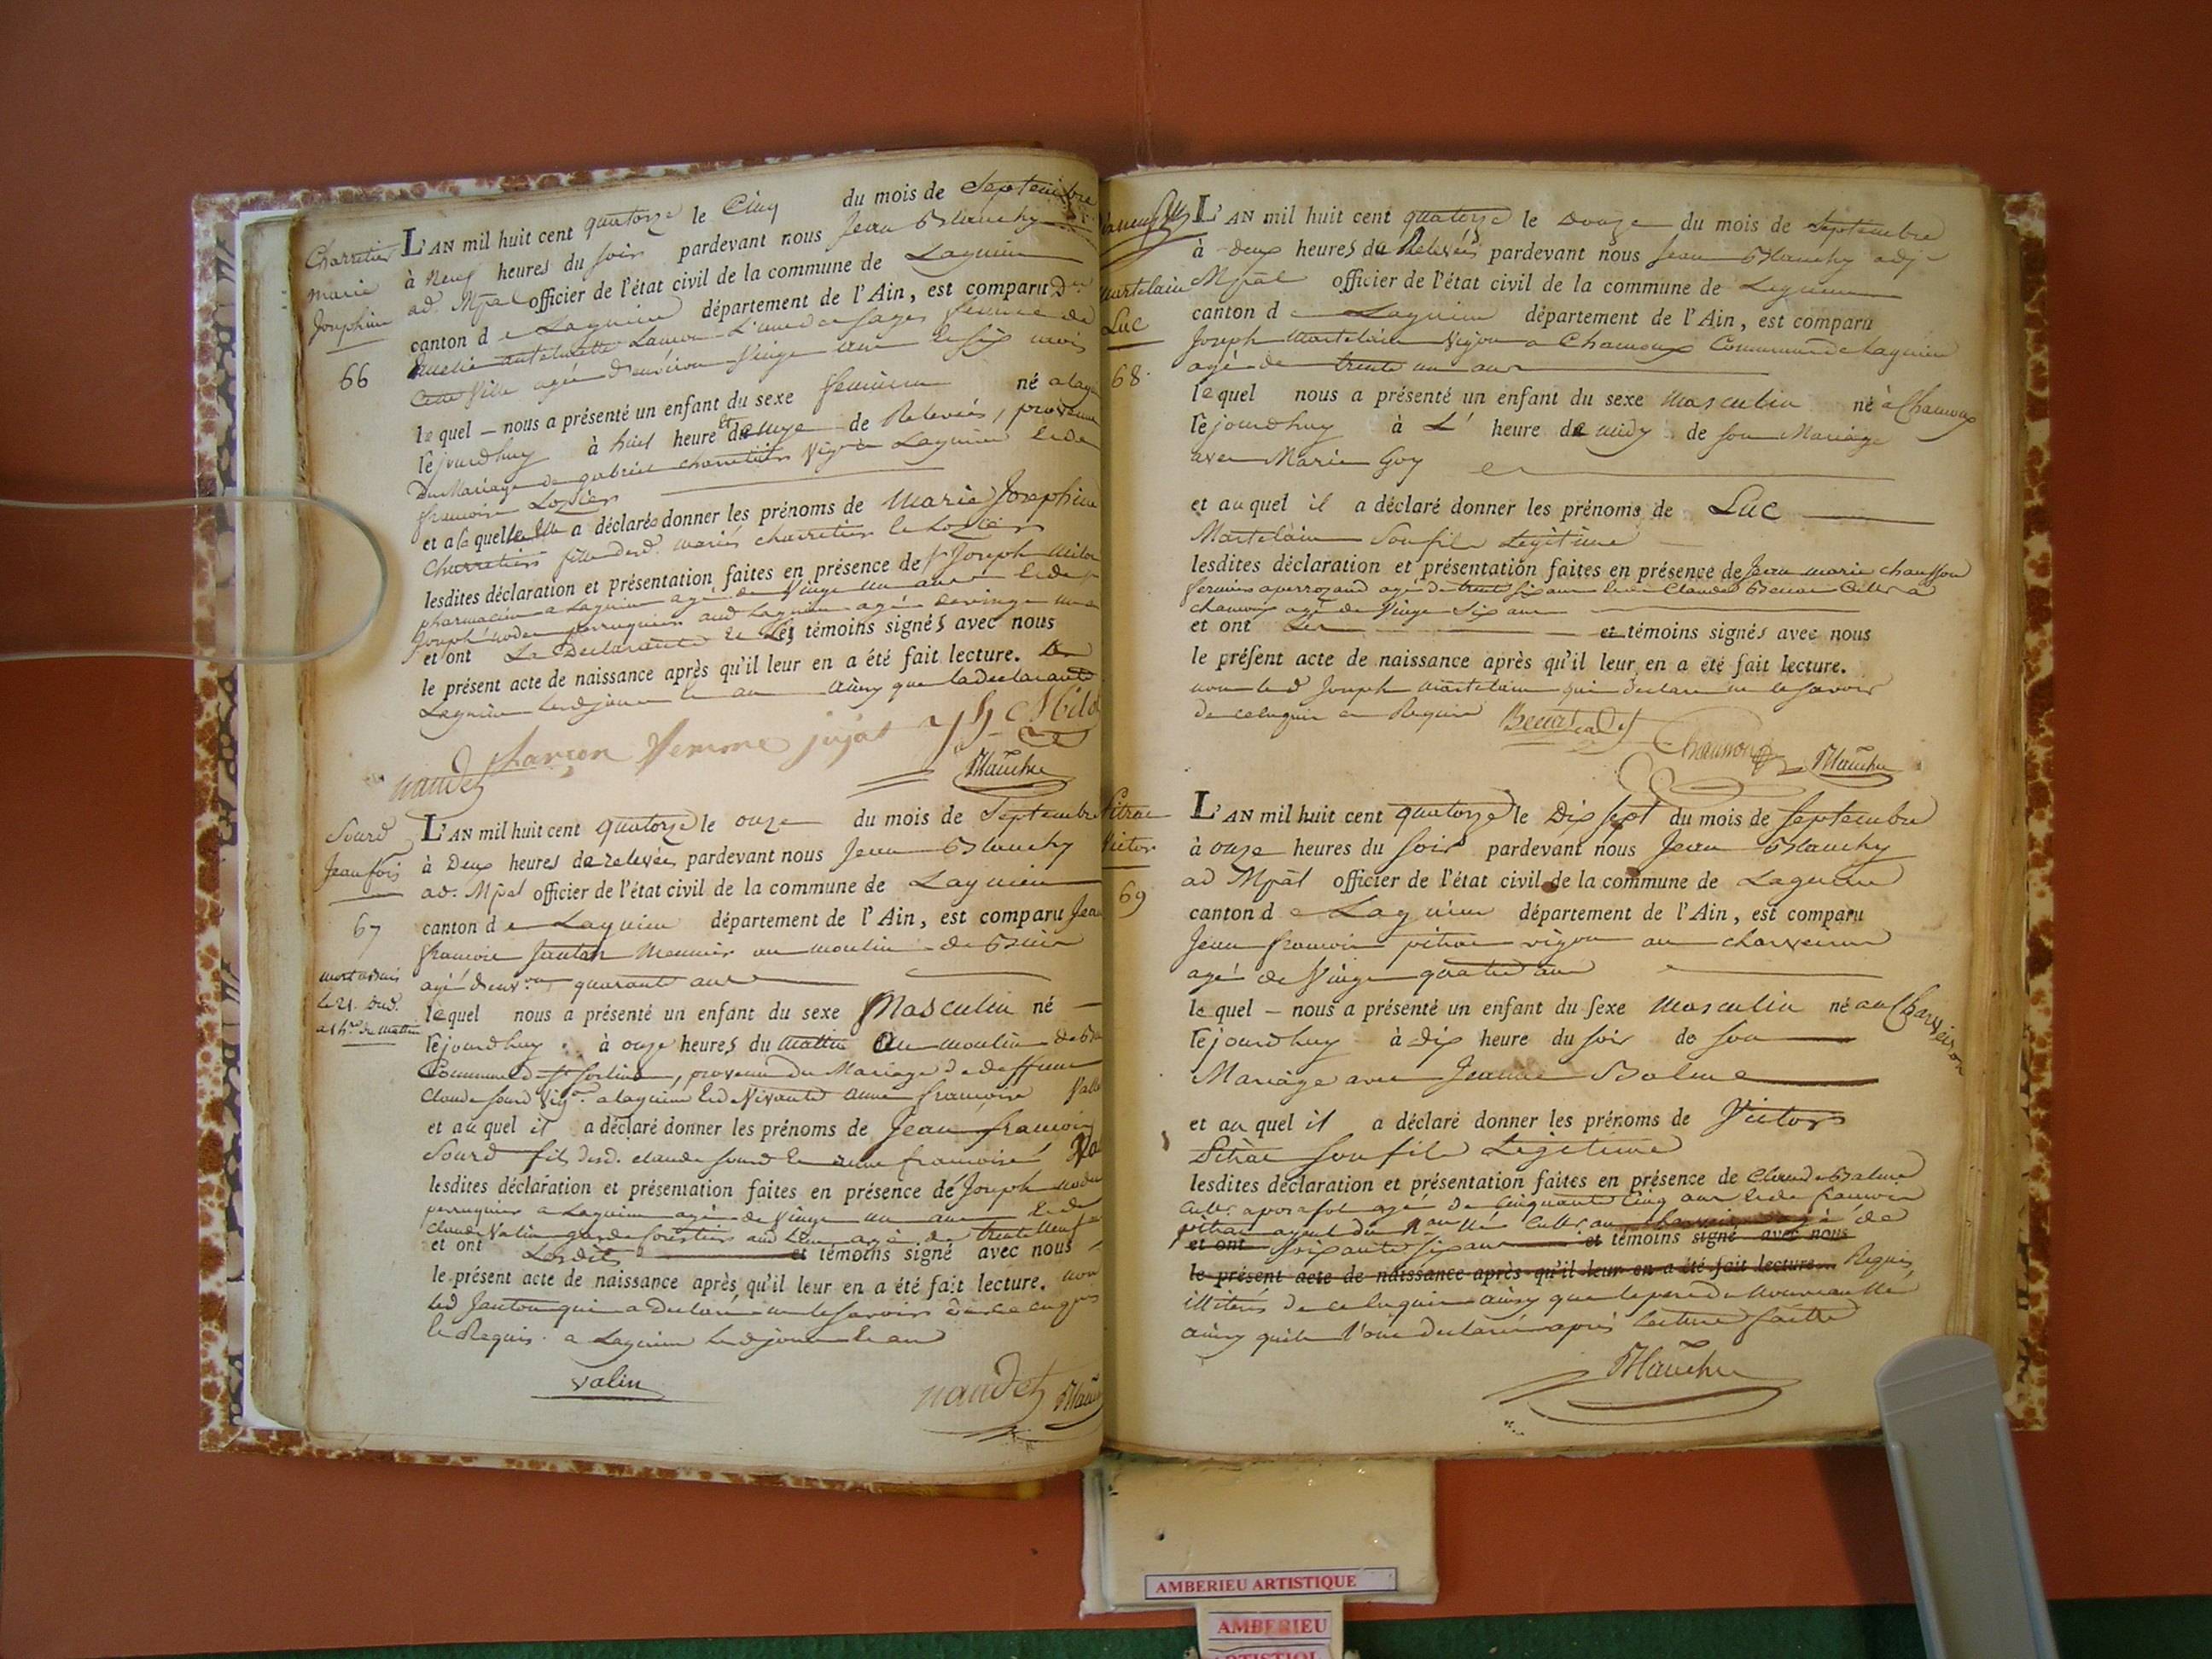 Charretier
Marie
Josephine
66
L'AN mil huit cent quatorze le Cinq du mois de Septembre
à Neuf heures du soir pardevant nous Jean Blanchy
ad. Mpal officier de l'état civil de la commune de Lagnieu
canton de Lagnieu département de l'Ain, est comparu De
Amelie antoinette L'une des sages femme de
Cette Ville agée d'environ Vingt ans le six mois
lequel – nous a présenté un enfant du sexe feminin né a lag
Cejourdhuy à huit heure et demye de Relevées, provenue
Du Mariage de gabriel charretier Vigon Lagnieu et de
francoise Losier
et a laquelle elle a déclaré donner les prénoms de Marie Josephine
Charretier fille desd. mariés charretier et Losier
lesdites déclaration et présentation faites en présence de Sr Joseph Milo
pharmacien a Lagnieu agé de Vingt un ans et de Sr
Joseph Nodet perruquier aud Lagnieu agé de vingt un a
et ont La Declarante et Les témoins signés avec nous
le présent acte de naissance après qu'il leur en a été fait lecture.
Lagnieu lesd jour et an ainsy que la declarante
femme jujat
Milo
naudet
Blanchy
Sourd
Jean fois
67
mort depuis
le 21. dud.
a 1 hre du mattin
L'AN mil huit cent quatorze le onze du mois de Septembre
à Deux heures de relevées pardevant nous Jean Blanchy
ad. Mpal officier de l'état civil de la commune de Lagnieu
canton de Lagnieu département de l'Ain, est comparu Jean
francois Janton Meunier au moulin de
agé d'environ quarante ans
lequel nous a présenté un enfant du sexe Masculin né –
Cejourdhuy à onze heures du mattin Au moulin de
Commune de St Sorlin, provenu du Mariage de deffunt
Claude Sourd Vign. a lagnieu et de Vivante anne francoise
et au quel il a déclaré donner les prénoms de Jean francois
Sourd fils desd. claude sourd et anne francoise
lesdites déclaration et présentation faites en présence de Joseph nodet
perruquier a Lagnieu agé de Vingt un ans et de
Claude Valin garde forestier aud Lieu agé de trente neuf
et ont Lesdits et témoins signé avec nous
le présent acte de naissance après qu'il leur en a été fait lecture. non
led Janton qui a Declaré ne le savoir de ce enquis
et Requis. a Lagnieu lesd jour et an
Valin
naudet
Blanchy
Martelain
Luc
68
L'AN mil huit cent quatorze le Douze du mois de Septembre
à deux heures de Relevées pardevant nous Jean Blanchy adj
Mpal officier de l'état civil de la commune de Lagnieu
canton de Lagnieu département de l'Ain, est comparu
Joseph Martelain Vigon a Chamoux Commune de Lagnieu
agé de trente un ans
lequel nous a présenté un enfant du sexe Masculin né à Chamoux
Cejourdhuy à L' heure de midy de son Mariage
avec Marie Goy
et au quel il a déclaré donner les prénoms de Luc
Martelain Son fils Legitime
lesdites déclaration et présentation faites en présence de Jean marie chausson
fermier a agé de trente six ans et de Claude Cultr a
chamoux agé de Vingt Six ans
et ont Les et témoins signés avec nous
le présent acte de naissance après qu'il leur en a été fait lecture.
non led Joseph Martelain qui declare ne le savoir
de ce enquis et Requis
Chausson
Blanchy
Pitrae
Victor
69
L'AN mil huit cent quatorze le Dix sept du mois de Septembre
à onze heures du soir pardevant nous Jean Blanchy
ad Mpal officier de l'état civil de la commune de Lagnieu
canton de Lagnieu département de l'Ain, est comparu
Jean francois pitrae vigon au charveiron
agé de Vingt quatre ans
lequel – nous a présenté un enfant du sexe Masculin né au Charveiron
Cejourdhuy à dix heure du soir de son
Mariage avec Jeanne Balme
et au quel il a déclaré donner les prénoms de Victor
Pitrae son fils Legitime
lesdites déclaration et présentation faites en présence de Claude Balme
cultr a posafol agé de Cinquante Cinq ans et de francois
pitrae ayeul du Nau Né cultr au charveiron agé de
et ont soixante six ans et témoins signé avec nous
le présent acte de naissance après qu'il leur en a été fait lecture. Requis
illiterés de ce enquis ainsy que le pere du Nouveau Né
ainsy qu'ils l'ont declaré après lecture faitte
Blanchy
AMBERIEU ARTISTIQUE
AMBERIEU